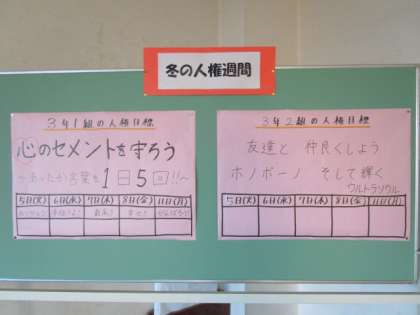 冬の人権週間
3年1組の人権目標
心のセメントを守ろう
～あったか言葉を1日5回!!～
5日(火) 6日(水) 7日(木) 8日(金) 11日(月)
3年2組の人権目標
友達と 仲良くしよう
ホノボーノ そして輝く
ウルトラソウル
5日(火) 6日(水) 7日(木) 8日(金) 11日(月)